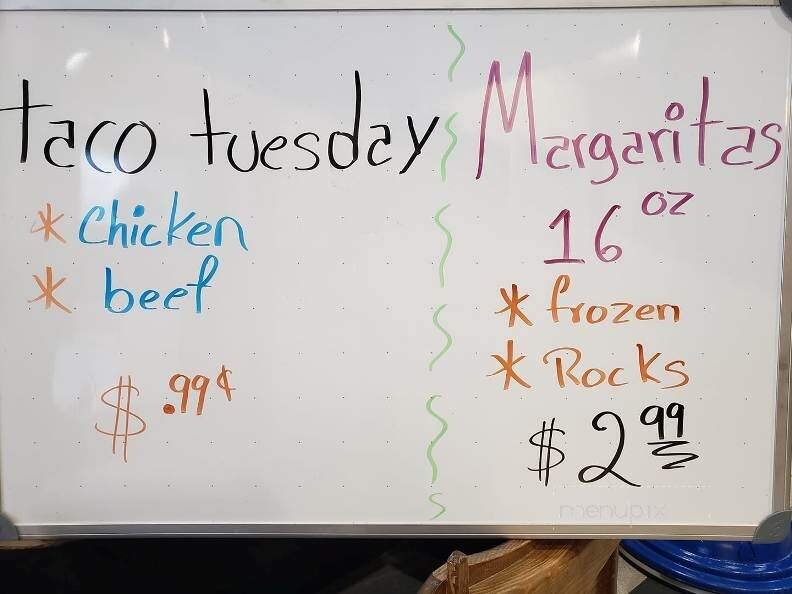 taco tuesday
* Chicken
* beef
$ .99¢
Margaritas
16 oz
* frozen
* Rocks
$2 99
menupix